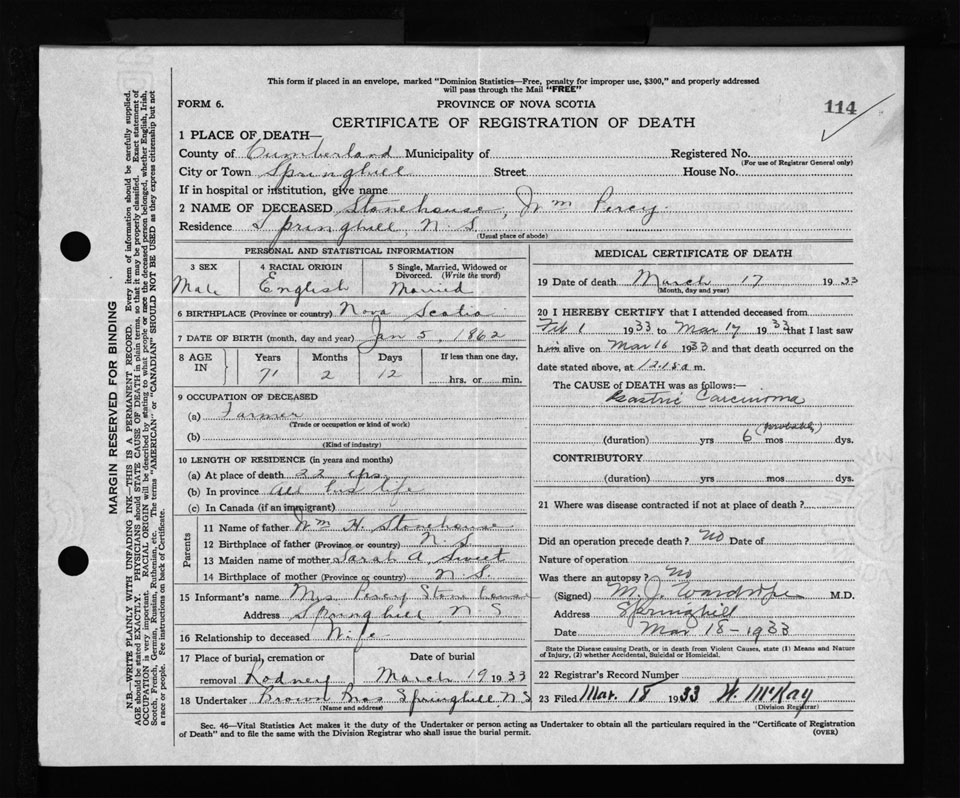 This form if placed in an envelope, marked "Dominion Statistics—Free, penalty for improper use, $300," and properly addressed
will pass through the Mail "FREE"
FORM 6.
PROVINCE OF NOVA SCOTIA
114
CERTIFICATE OF REGISTRATION OF DEATH
1 PLACE OF DEATH—
County of Cumberland Municipality of Registered No.
(For use of Registrar General only)
City or Town Springhill Street House No.
If in hospital or institution, give name
2 NAME OF DECEASED Stonehouse, Wm Percy
Residence Springhill, N.S.
(Usual place of abode)
PERSONAL AND STATISTICAL INFORMATION
3 SEX
Male
4 RACIAL ORIGIN
English
5 Single, Married, Widowed or
Divorced. (Write the word)
Married
6 BIRTHPLACE (Province or country) Nova Scotia
7 DATE OF BIRTH (month, day and year) Jan 5, 1862
8 AGE
IN
Years
71
Months
2
Days
12
If less than one day,
hrs. or min.
9 OCCUPATION OF DECEASED
(a) Farmer
(Trade or occupation or kind of work)
(b)
(Kind of industry)
10 LENGTH OF RESIDENCE (in years and months)
(a) At place of death 22 yrs
(b) In province All his life
(c) In Canada (if an immigrant)
Parents
11 Name of father Wm H. Stonehouse
12 Birthplace of father (Province or country) N.S.
13 Maiden name of mother Sarah A. Sweet
14 Birthplace of mother (Province or country) N.S.
15 Informant's name Mrs Percy Stonehouse
Address Springhill N S
16 Relationship to deceased Wife
17 Place of burial, cremation or
removal Rodney
Date of burial
March 19 1933
18 Undertaker Brown Bros Springhill N S
(Name and address)
MEDICAL CERTIFICATE OF DEATH
19 Date of death March 17 1933
(Month, day and year)
20 I HEREBY CERTIFY that I attended deceased from
Feb 1 1933 to Mar 17 1933 that I last saw
him alive on Mar 16 1933 and that death occurred on the
date stated above, at 12.15 a m.
The CAUSE OF DEATH was as follows:—
Gastric Carcinoma
(probably)
(duration) yrs 6 mos dys.
CONTRIBUTORY
(duration) yrs mos dys.
21 Where was disease contracted if not at place of death?
Did an operation precede death? No Date of
Nature of operation
Was there an autopsy? No
(Signed) M. J. Wardrope M.D.
Address Springhill
Date Mar 18-1933
State the Disease causing Death, or in death from Violent Causes, state (1) Means and Nature
of Injury, (2) whether Accidental, Suicidal or Homicidal.
22 Registrar's Record Number
23 Filed Mar. 18 1933 H. McKay
(Division Registrar)
Sec. 46—Vital Statistics Act makes it the duty of the Undertaker or person acting as Undertaker to obtain all the particulars required in the "Certificate of Registration
of Death" and to file the same with the Division Registrar who shall issue the burial permit.
(OVER)
MARGIN RESERVED FOR BINDING
N.B.—WRITE PLAINLY WITH UNFADING INK—THIS IS A PERMANENT RECORD. Every item of information should be carefully supplied.
AGE should be stated EXACTLY. PHYSICIANS should STATE CAUSE OF DEATH in plain terms, so that it may be properly classified. Exact statement of
OCCUPATION is very important. RACIAL ORIGIN will be described by stating to what people or race the deceased person belonged, whether English, Irish,
Scotch, French, German, Russian, Ruthenian, etc. The terms "AMERICAN" or "CANADIAN" SHOULD NOT BE USED as they express citizenship but not
a race or people. See instructions on back of Certificate.